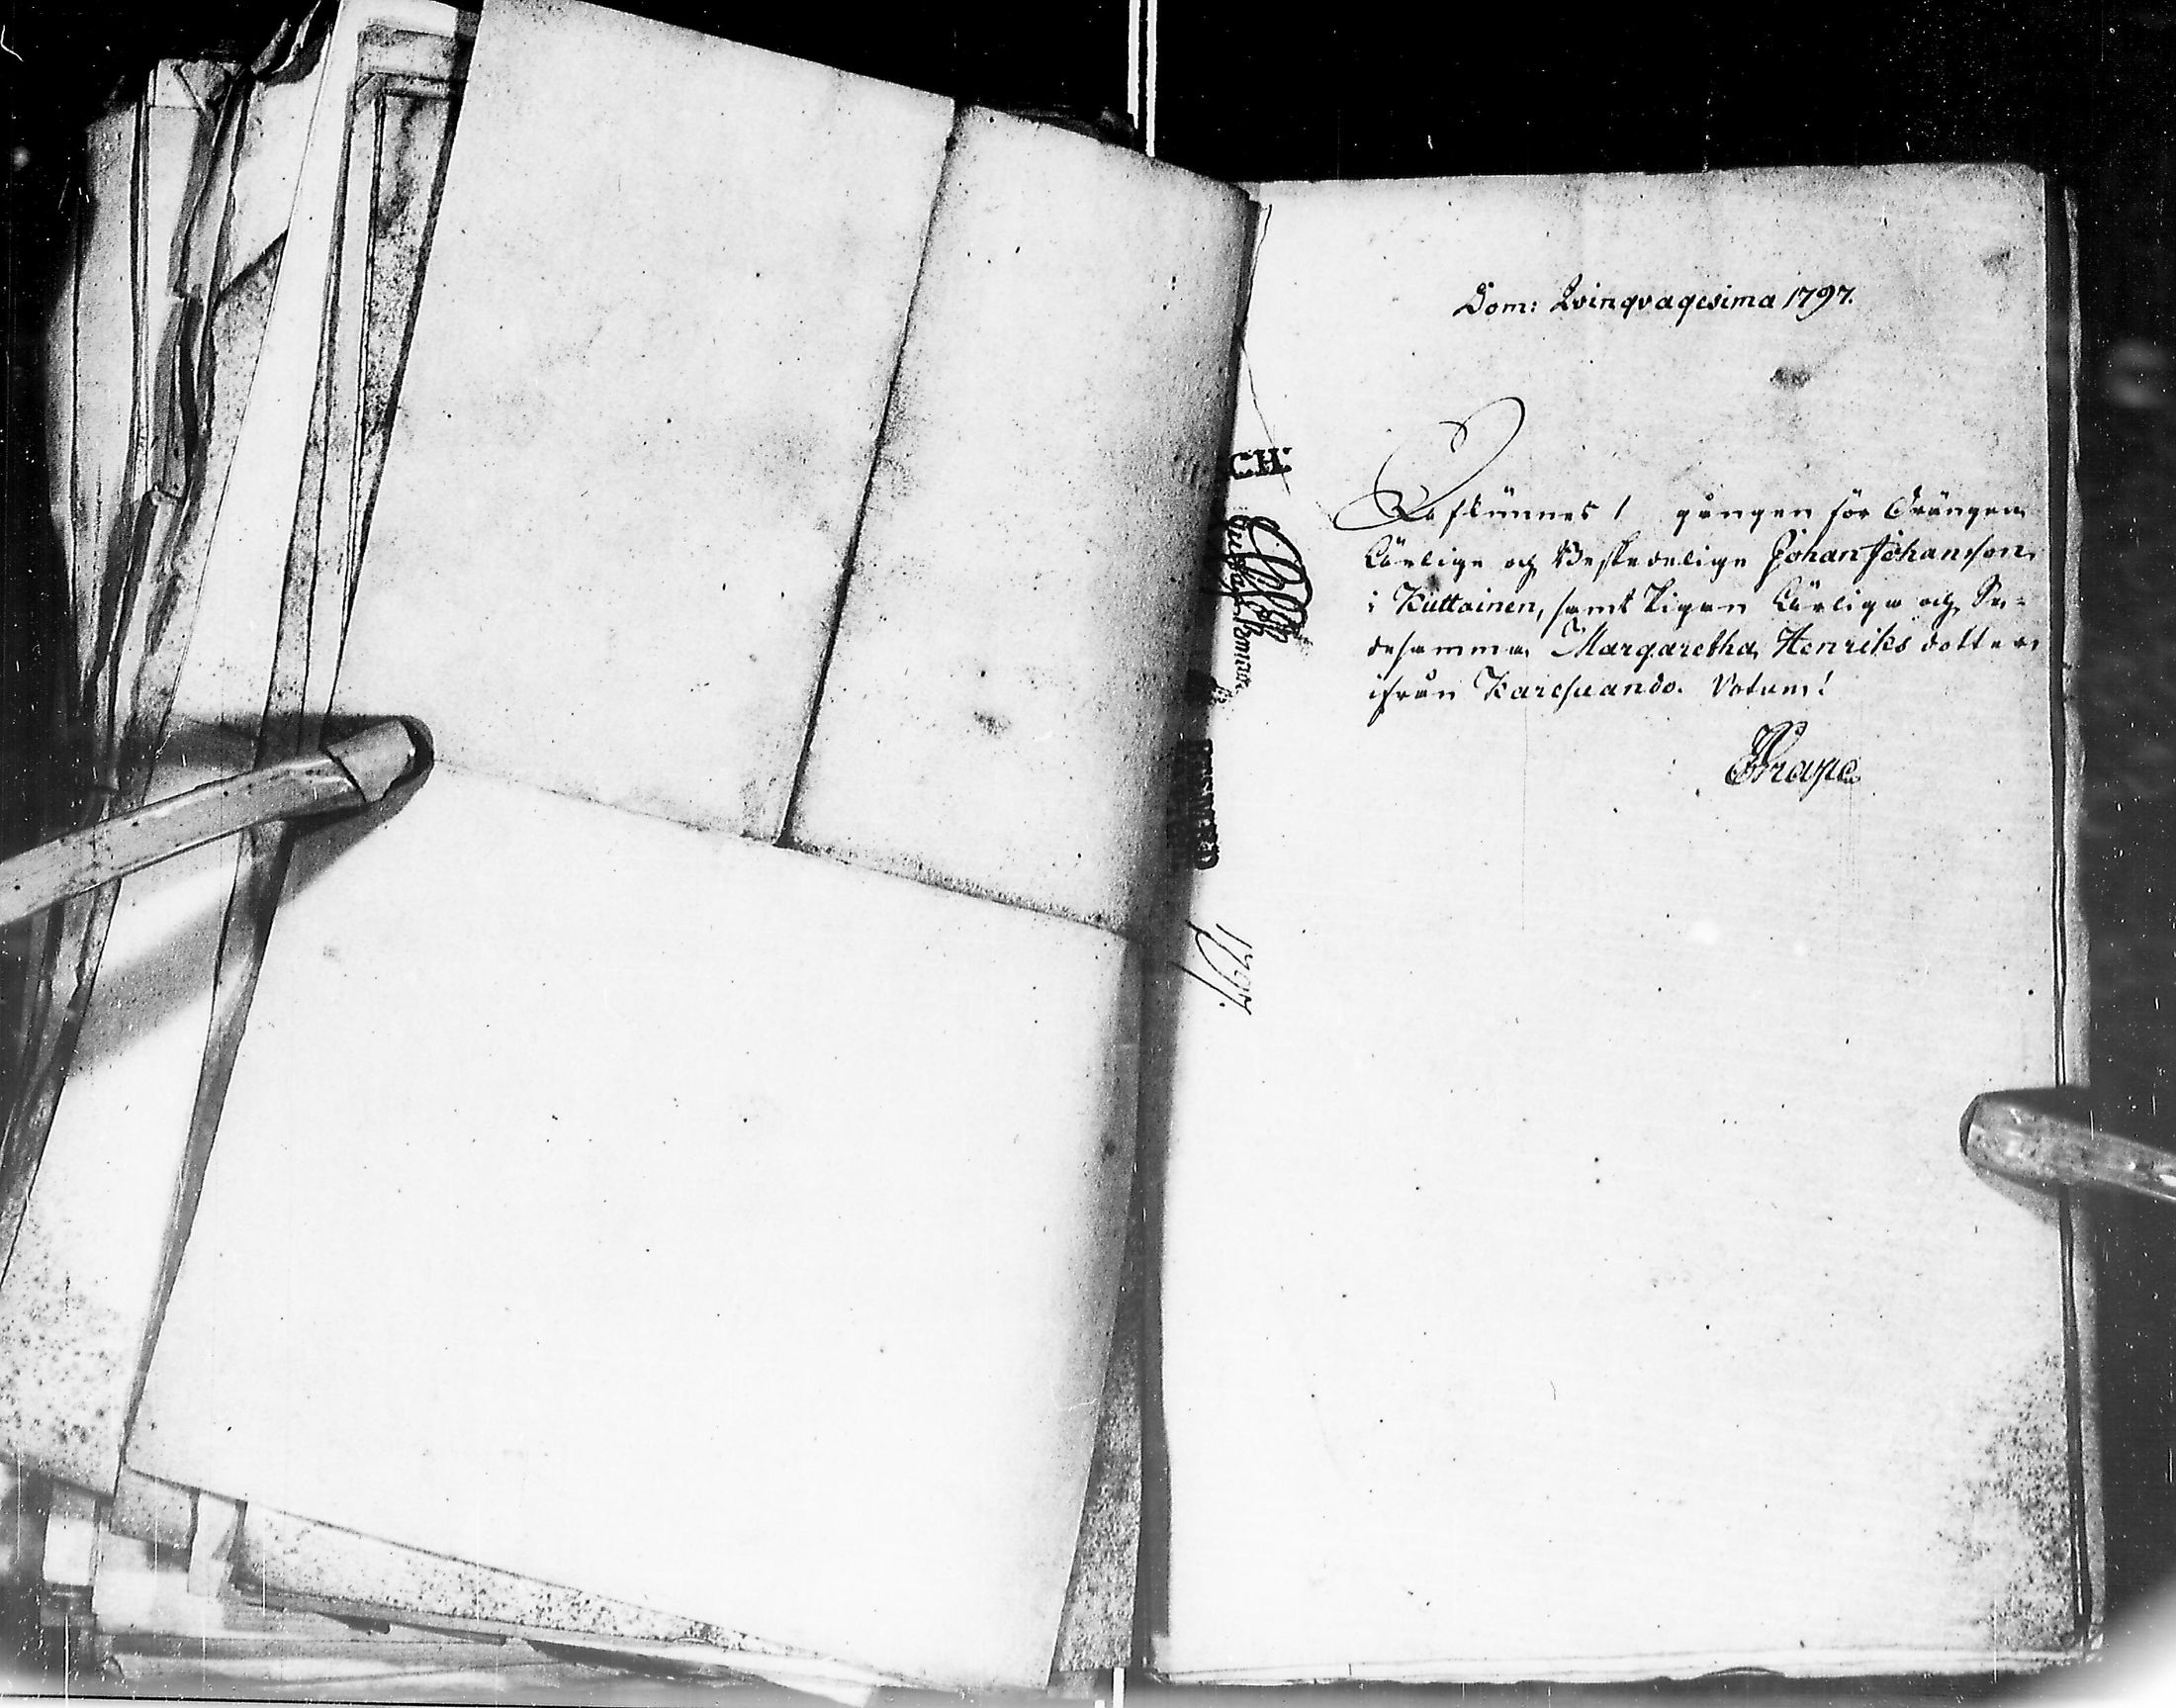 Dom: Qvinqvagesima 1797.
Afkunnes 1 gången för Drängen
Ärlige och Beskedelige Johan Johansson
i Kuttainen, samt Pigan Ärliga och Gu-
desamma Margaretha Henriks dotter
ifrån Karesuando. Votum!
CH:
1797.